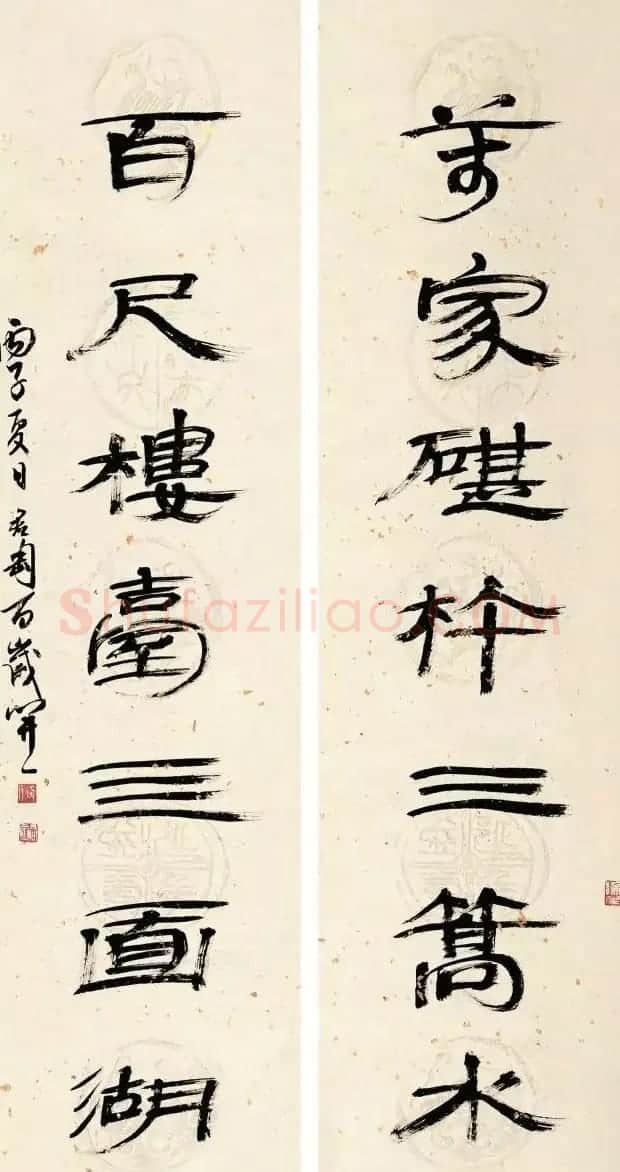 萬家碪杵三篙水
百尺樓臺亖面湖
丙子夏日君匋百歲開一
Shufaziliao.COM